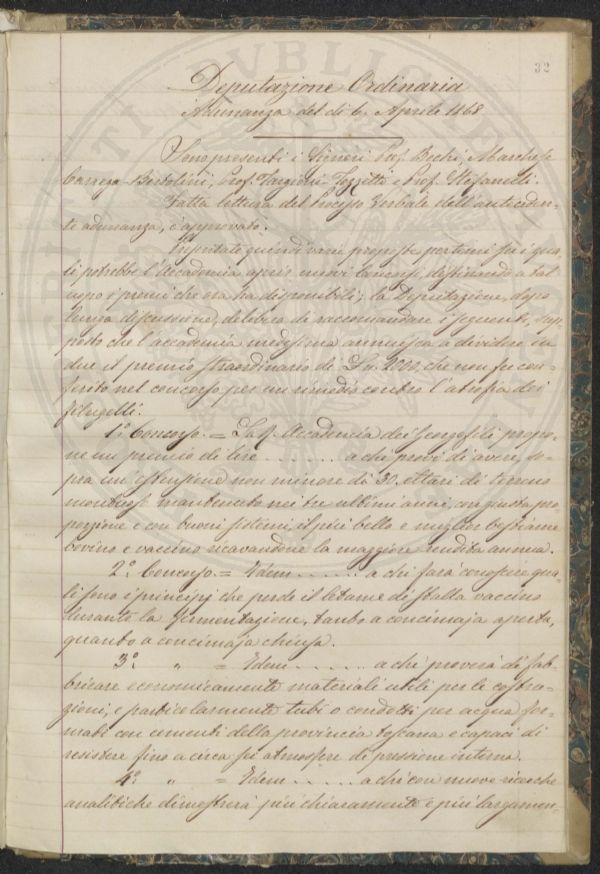 32
Deputazione Ordinaria
Adunanza del dì 6 Aprile 1868
Sono presenti i Signori Prof. Bechi, Marchese
Carrega Bertolini, Prof. Targioni-Tozzetti e Prof. Stefanelli.
Fatta lettura del Processo Verbale dell'anteceden-
te adunanza, è approvato.
quindi varie proposte pertemi sui qua-
li potrebbe l'Accademia aprir nuovi concorsi, destinando a tal
uopo i premi che ora ha disponibili; la Deputazione, dopo
lunga discussione, delibera di raccomandare i seguenti, sup-
posto che l'accademia medesima annuisca a dividere in
due il premio straordinario di Ln. 2000, che non fu con-
ferito nel concorso per un rimedio contro l'atrofia dei
filugelli.
1.º Concorso. = La R. Accademia dei Georgofili propo-
ne un premio di lire . . . . . . . . a chi provi di avere, so-
pra un'estensione non minore di 30 ettari di terreno
montuoso mantenuto nei tre ultimi anni, con giusta pro-
porzione e con buoni sistemi, il più bello e miglior bestiame
bovino e vaccino ricavandone la maggiore rendita annua.
2.º Concorso. = Idem . . . . . . a chi farà conoscere qua-
li sono i principj che perde il letame di stalla vaccino
durante la fermentazione, tanto a concimaja aperta,
quanto a concimaja chiusa.
3.º " = Idem . . . . . . . a chi proverà di fab-
bricare economicamente materiali utili per le costru-
zioni, e particolarmente tubi o condotti per acqua for-
mati con cementi della provincia toscana e capaci di
resistere fino a circa sei atmosfere di pressione interna.
4.º " = Idem . . . . . . a chi con nuove ricerche
analitiche dimostrerà più chiaramente e più largamen-